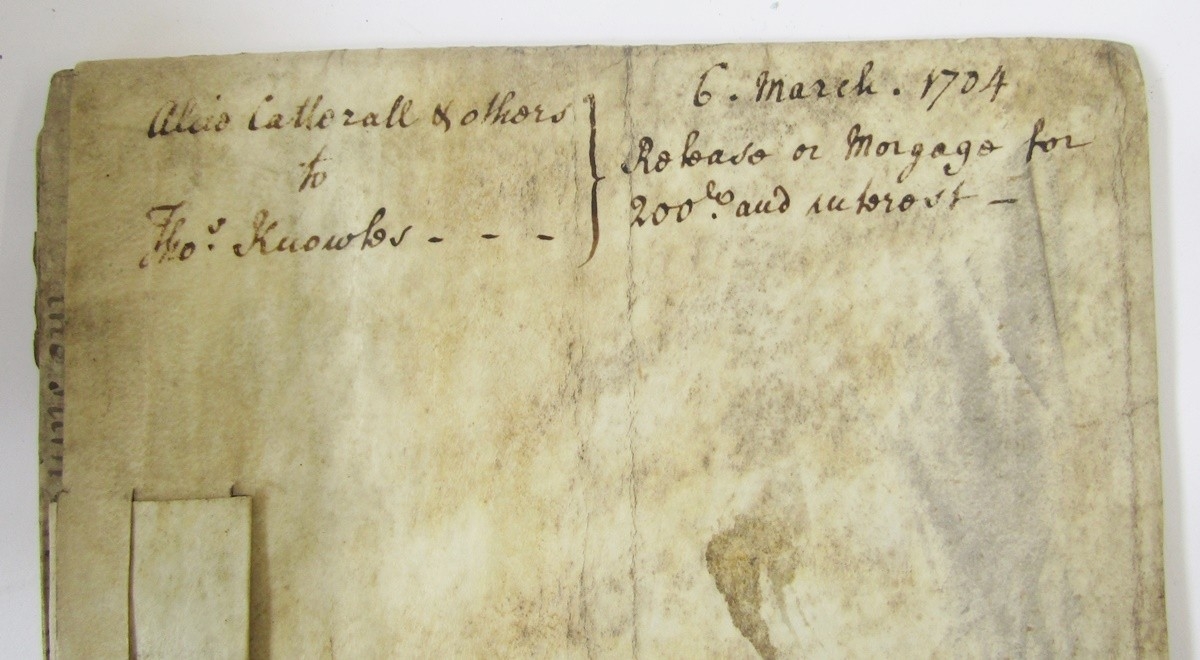 Alice Catterall & others
to
Thos. Knowles - - -
6. March. 1704
Release or Morgage for
200lb. and interest -